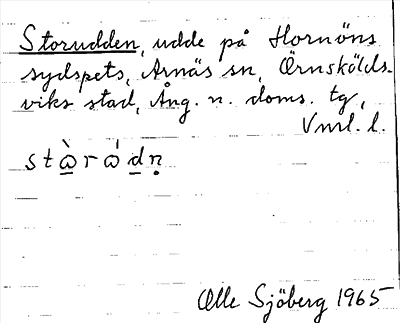 Storudden, udde på Hornöns
sydspets, Arnäs sn, Örnskölds-
viks stad, Ång. n. doms. tg,
Vnrl. l.
Olle Sjöberg 1965